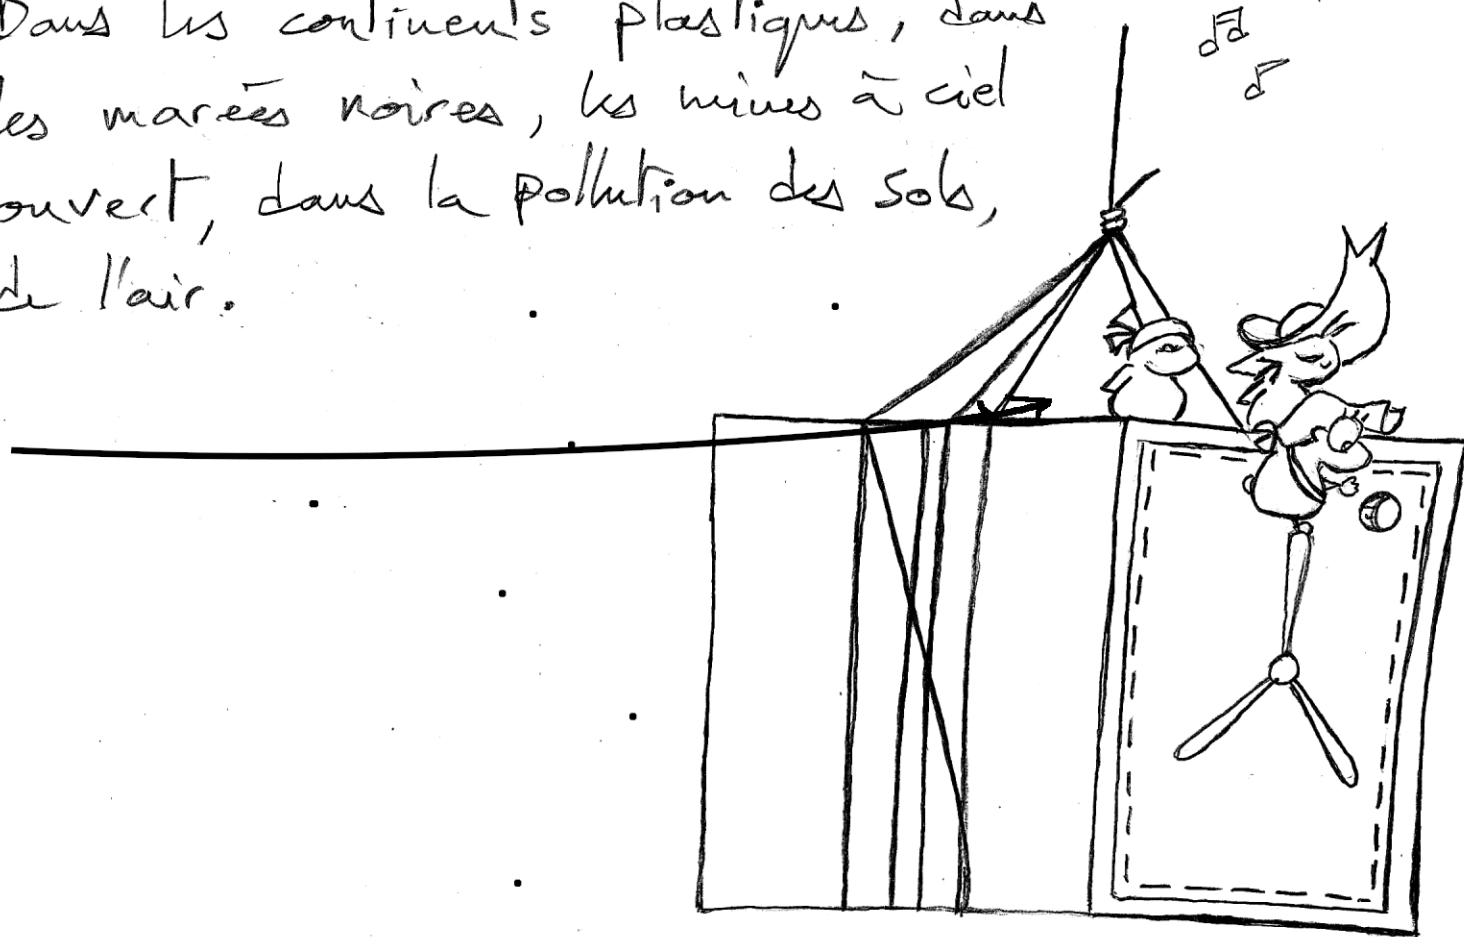 Dans les continents plastiques, dans
les marées noires, les mines à ciel
ouvert, dans la pollution des sols,
de l'air.